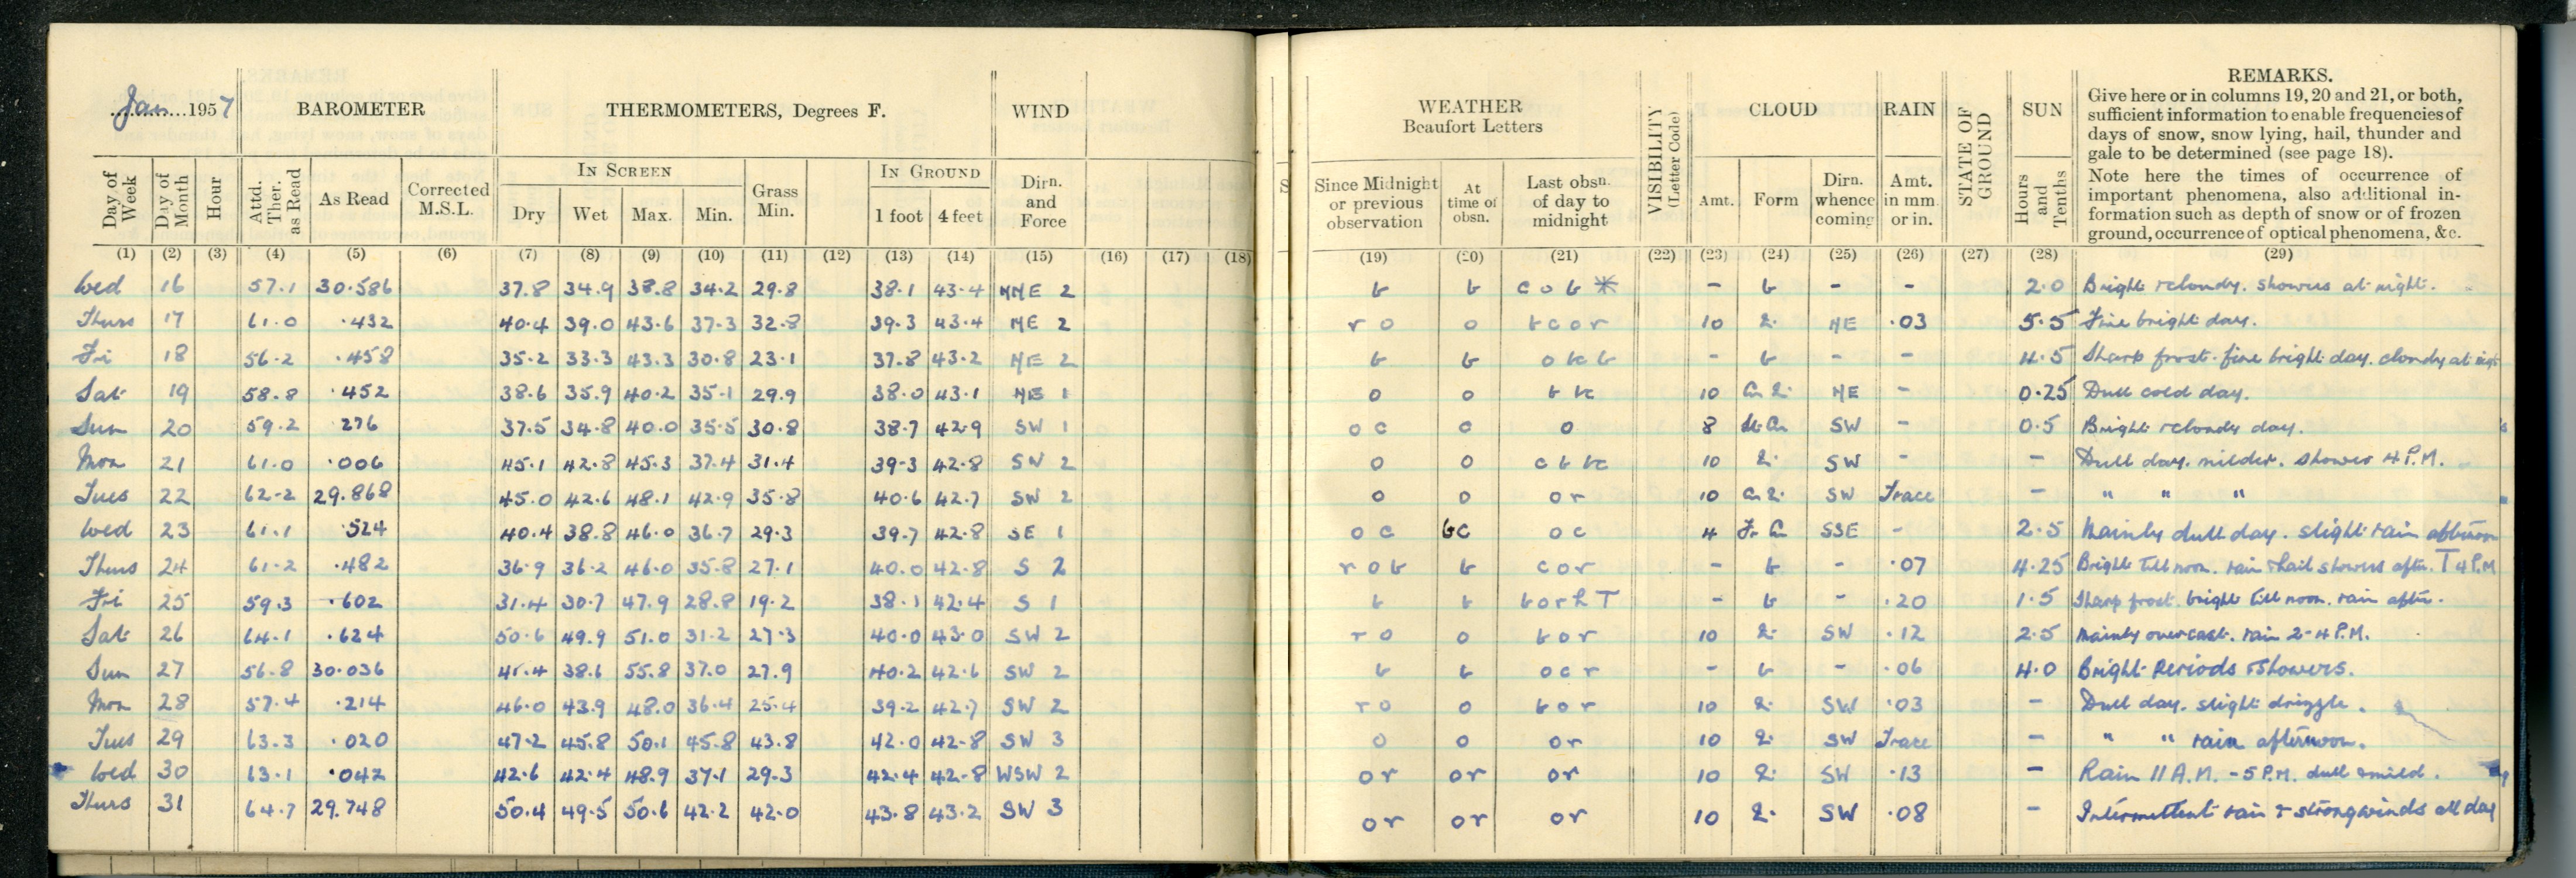 Jan. 1957 BAROMETER THERMOMETERS, Degrees F. WIND WEATHER Beaufort Letters VISIBILITY (Letter Code) CLOUD RAIN STATE OF GROUND SUN REMARKS.
Give here or in columns 19, 20 and 21, or both,
sufficient information to enable frequencies of
days of snow, snow lying, hail, thunder and
gale to be determined (see page 18).
Note here the times of occurrence of
important phenomena, also additional in-
formation such as depth of snow or of frozen
ground, occurrence of optical phenomena, &c.
Day of Week Day of Month Hour Attd. Ther. as Read As Read Corrected M.S.L. IN SCREEN Dry Wet Max. Min. Grass Min. IN GROUND 1 foot 4 feet Dirn. and Force Since Midnight or previous observation At time of obsn. Last obsn. of day to midnight Amt. Form Dirn. whence coming Amt. in mm. or in. Hours and Tenths
(1) (2) (3) (4) (5) (6) (7) (8) (9) (10) (11) (12) (13) (14) (15) (16) (17) (18) (19) (20) (21) (22) (23) (24) (25) (26) (27) (28) (29)
Wed 16 57.1 30.586 37.8 34.9 38.8 34.2 29.8 38.1 43.4 NNE 2 b b c o b * - b - - 2.0 Bright & cloudy. showers at night.
Thurs 17 61.0 .432 40.4 39.0 43.6 37.3 32.8 39.3 43.4 NE 2 r o o b c o r 10 NE .03 5.5 Fine bright day.
Fri 18 56.2 .458 35.2 33.3 43.3 30.8 23.1 37.8 43.2 NE 2 b b o bc b - b - - 4.5 Sharp frost. fine bright day. cloudy at
Sat 19 58.8 .452 38.6 35.9 40.2 35.1 29.9 38.0 43.1 NE 1 o o b bc 10 NE - 0.25 Dull cold day.
Sun 20 59.2 276 37.5 34.8 40.0 35.5 30.8 38.7 42.9 SW 1 o c o o 8 SW - 0.5 Bright & cloudy day.
Mon 21 61.0 .006 45.1 42.8 45.3 37.4 31.4 39.3 42.8 SW 2 o o c b bc 10 SW - - Dull day. milder. shower 4 P.M.
Tues 22 62.2 29.868 45.0 42.6 48.1 42.9 35.8 40.6 42.7 SW 2 o o o r 10 SW Trace - " " "
Wed 23 61.1 .524 40.4 38.8 46.0 36.7 29.3 39.7 42.8 SE 1 o c bc o c 4 SSE - 2.5 Mainly dull day. slight rain afternoon
Thurs 24 61.2 .482 36.9 36.2 46.0 35.8 27.1 40.0 42.8 S 2 r o b b c o r - b - .07 4.25 Bright till noon. rain & hail showers after. T 4 P.M
Fri 25 59.3 .602 31.4 30.7 47.9 28.8 19.2 38.1 42.4 S 1 b b b o r h T - b - .20 1.5 Sharp frost. bright till noon. rain after.
Sat 26 64.1 .624 50.6 49.9 51.0 31.2 27.3 40.0 43.0 SW 2 r o o b o r 10 SW .12 2.5 Mainly overcast. rain 2-4 P.M.
Sun 27 56.8 30.036 41.4 38.6 55.8 37.0 27.9 40.2 42.6 SW 2 b b o c r - b - .06 4.0 Bright Periods & Showers.
Mon 28 57.4 .214 46.0 43.9 48.0 36.4 25.4 39.2 42.7 SW 2 r o o b o r 10 SW .03 - Dull day. slight drizzle.
Tues 29 63.3 .020 47.2 45.8 50.1 45.8 43.8 42.0 42.8 SW 3 o o o r 10 SW Trace - " " rain afternoon.
Wed 30 63.1 .042 42.6 42.4 48.9 37.1 29.3 42.4 42.8 WSW 2 o r o r o r 10 SW .13 - Rain 11 A.M. - 5 P.M. dull & mild.
Thurs 31 64.7 29.748 50.4 49.5 50.6 42.2 42.0 43.8 43.2 SW 3 o r o r o r 10 SW .08 - Intermittent rain & strong winds all day